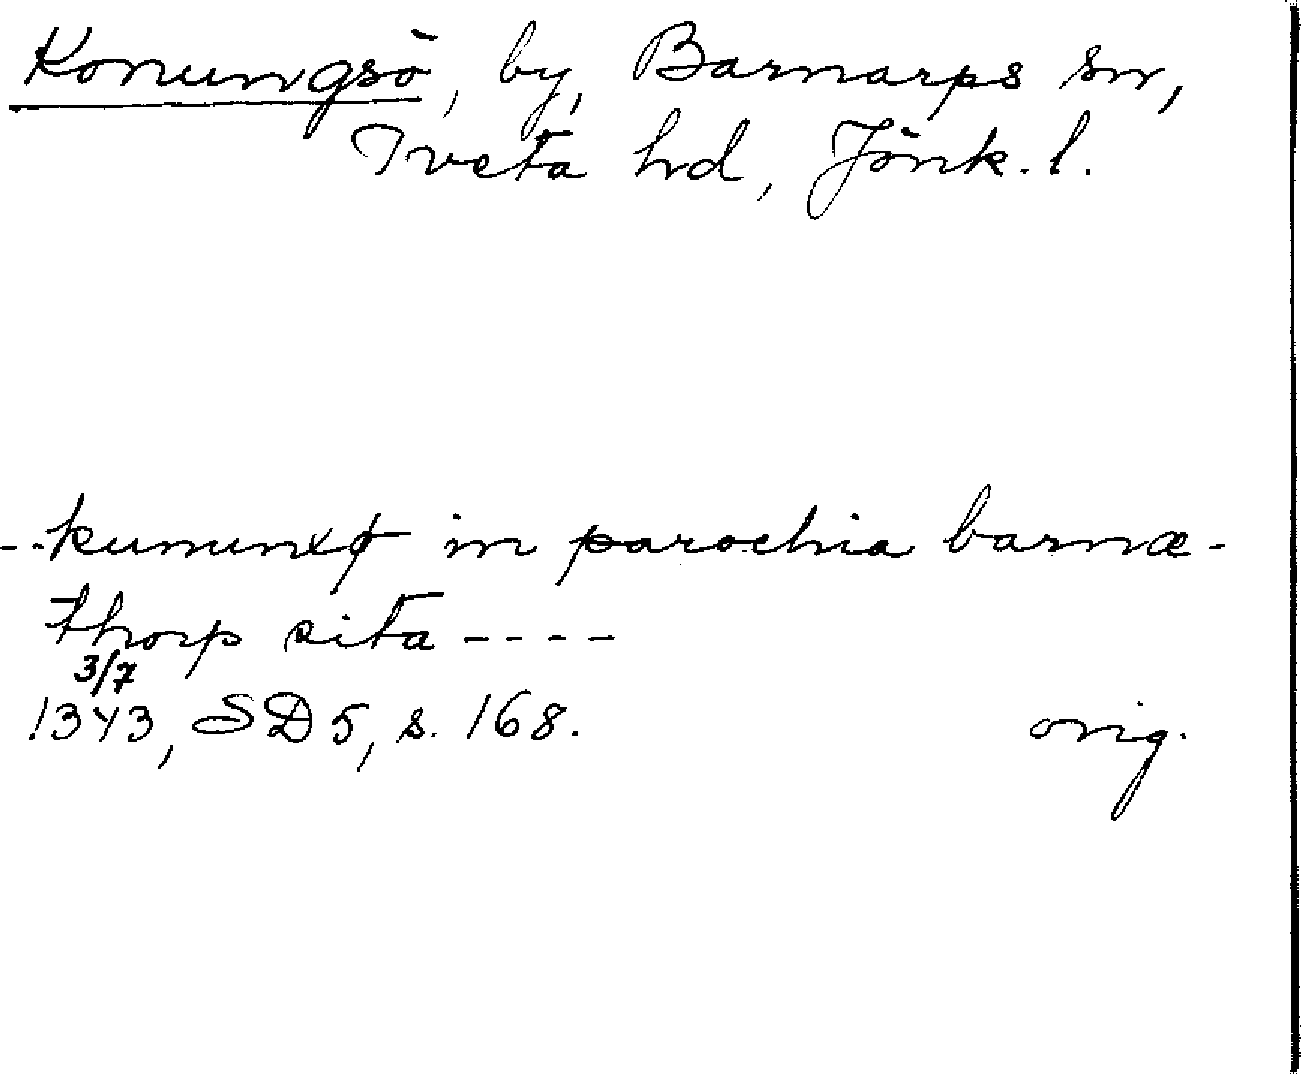 Konungsö, by, Barnarps sn,
Tveta hd, Jönk. l.
--kununxø in parochia barnæ-
thorp sita ----
3/7
1343, SD 5, s. 168. orig.